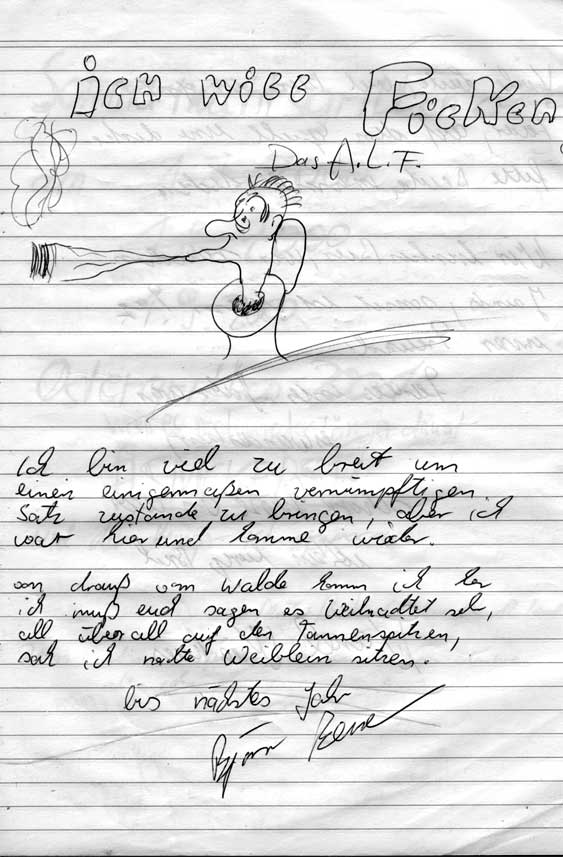 ich will Ficken
Das A.L.F.
Ich bin viel zu breit um
einen einigermaßen vernümpftigen
Satz zustande zu bringen, aber ich
war hier und komme wieder.
von drauß vom Walde komm ich her
ich muß euch sagen es Weihnachtet seh,
all überall auf den Tannenspitzen,
sah ich nackte Weiblein sitzen.
bis nächstes Jahr
Björn